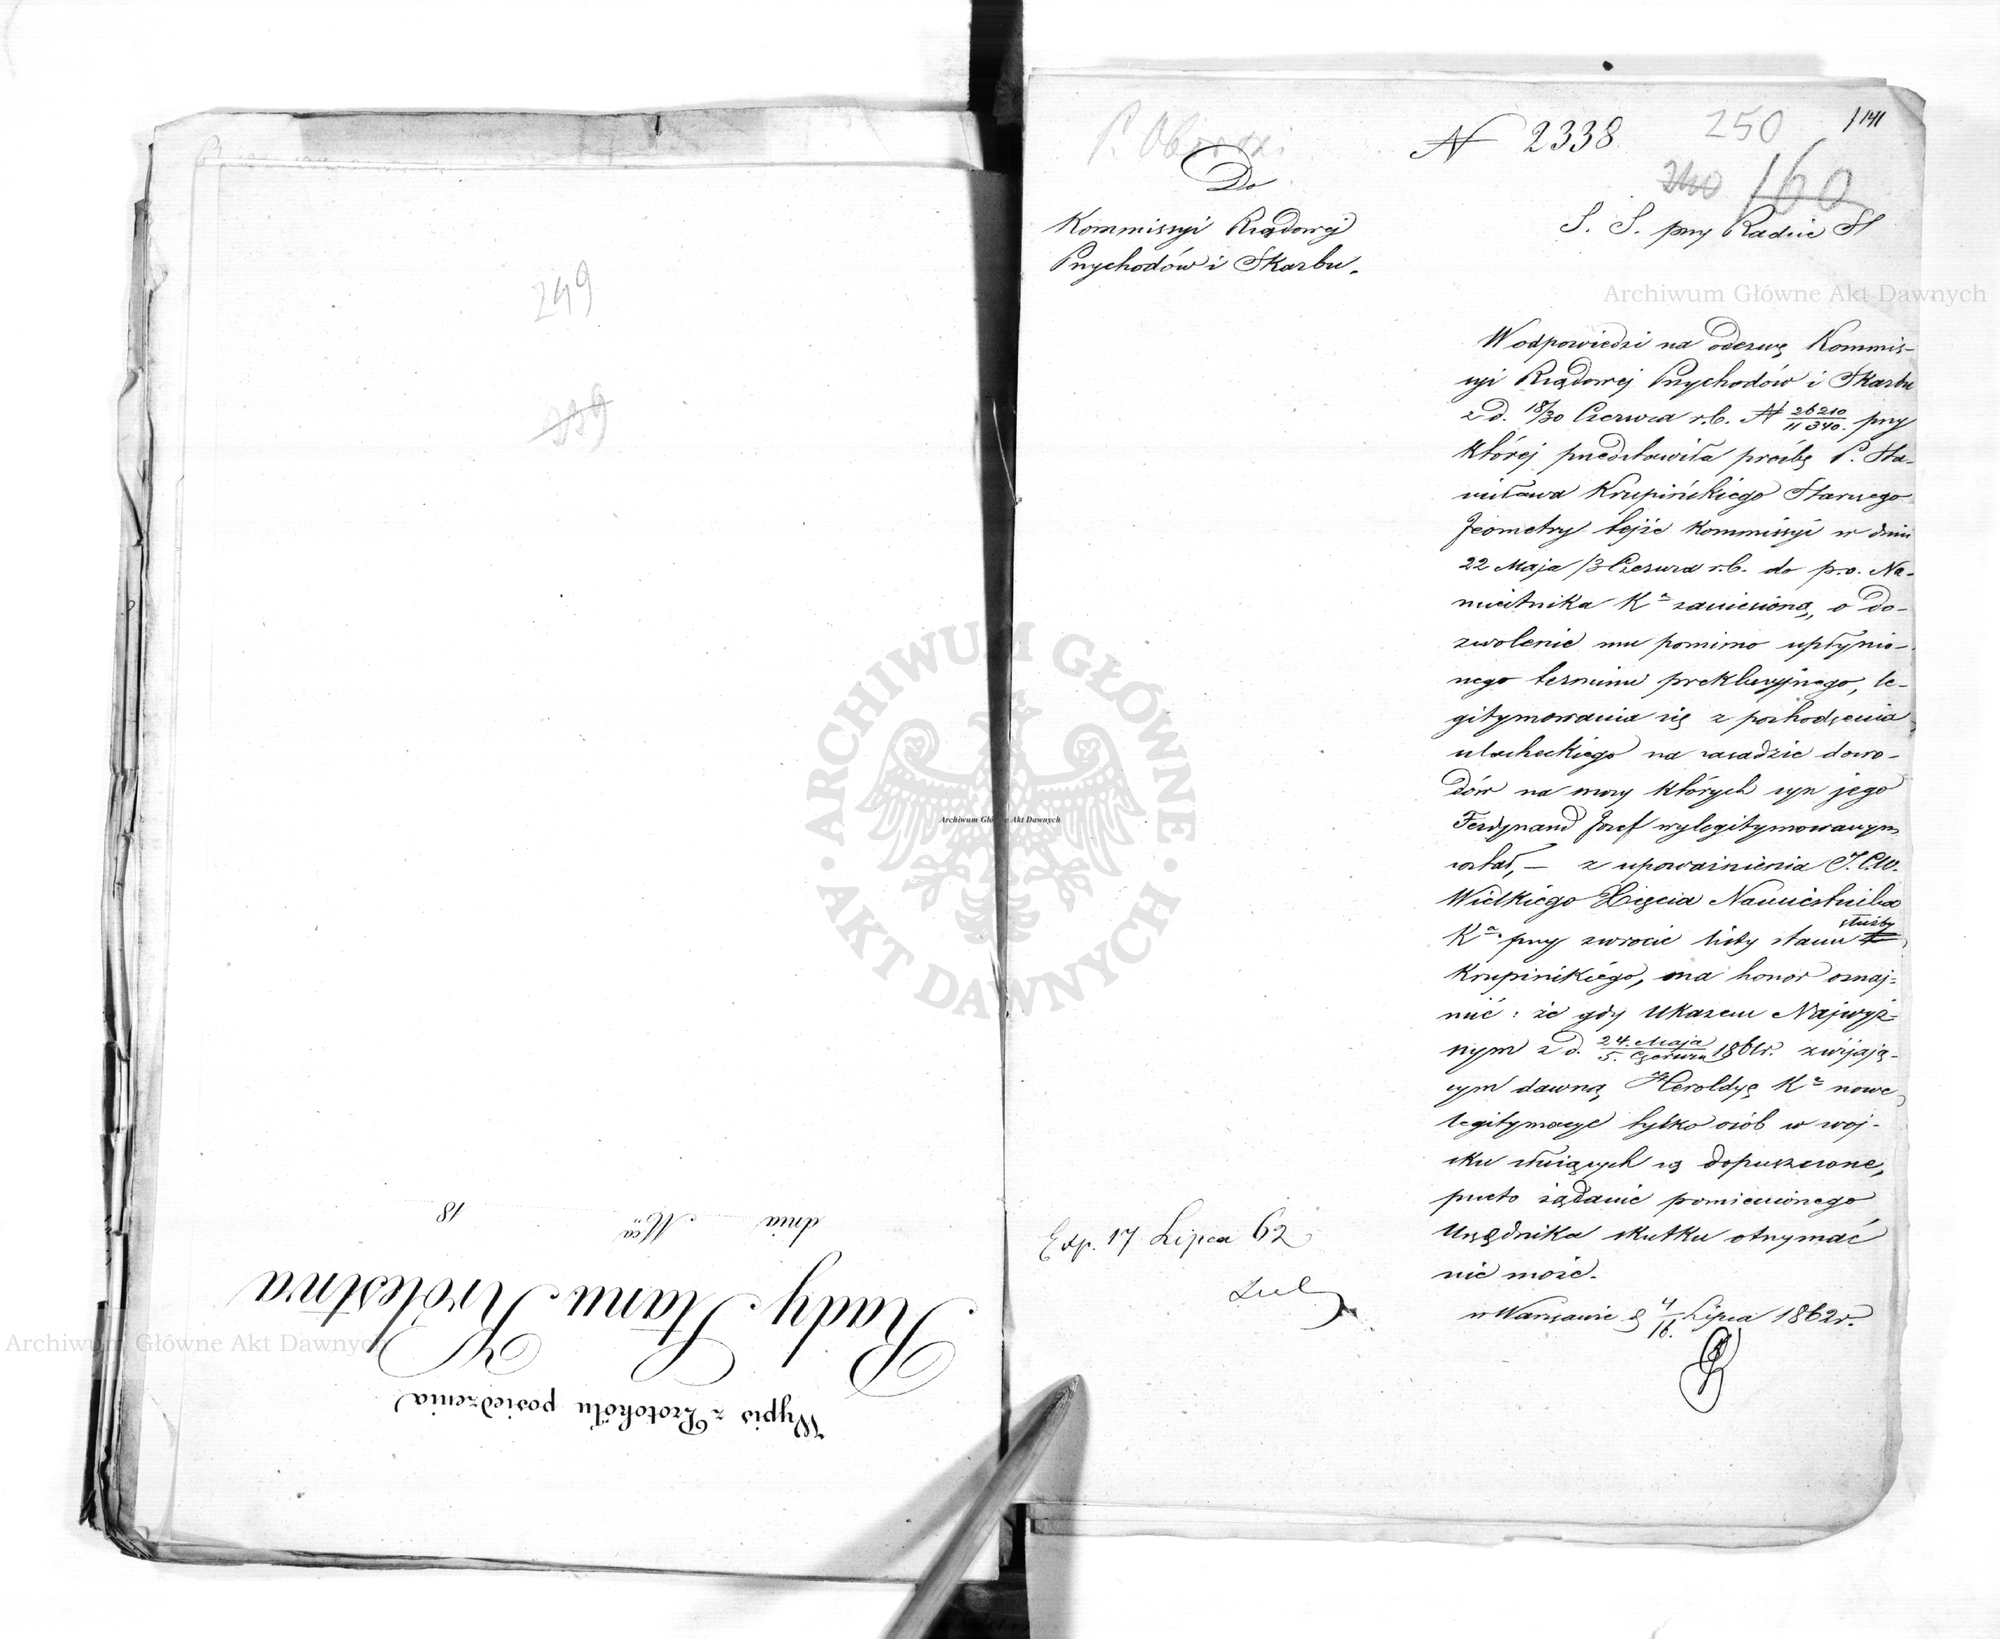 249
239
Wypis z Protokółu posiedzenia
Rady Stanu Królestwa
dnia Mca 18
N 2338
250
141
240 160
Do
Kommissyi Rządowej
Przychodów i Skarbu.
S. S. przy Radzie St
W odpowiedzi na odezwę Kommis-
syi Rządowej Przychodów i Skarbu
z d. 18/30 Czerwca r.b. N 26210/11340. przy
której przedstawiła prośbę P. Sta-
nisława Krupińskiego Starszego
Jeometry tejże Kommissyi w dniu
22 Maja /3 Czerwca r.b. do p.o. Na-
miestnika Kа zaniesioną, o do-
zwolenie mu pomimo upłynio-
nego terminu prekluzyjnego, le-
gitymowania się z pochodzenia
szlacheckiego na zasadzie dowo-
dów na mocy których syn jego
Ferdynand Józef wylegitymowanym
został, — z upoważnienia J. C. W.
Wielkiego Xięcia Namiestnika
Kа przy zwrocie listy stanu służby
Krupińskiego, ma honor oznaj-
mić: że gdy Ukazem Najwyż-
szym z d. 24. Maja/5. Czerwca 1861r. zwijają-
cym dawną Heroldyę Kа nowe
legitymacye tylko osób w woj-
sku służących są dopuszczone,
przeto żądanie pomienionego
Urzędnika skutku otrzymać
nie może.
w Warszawie d 4/16. Lipca 1862r.
Exp. 17 Lipca 62
Archiwum Główne Akt Dawnych
Archiwum Główne Akt Dawnych
Archiwum Główne Akt Dawnych
ARCHIWUM GŁÓWNE · AKT DAWNYCH ·